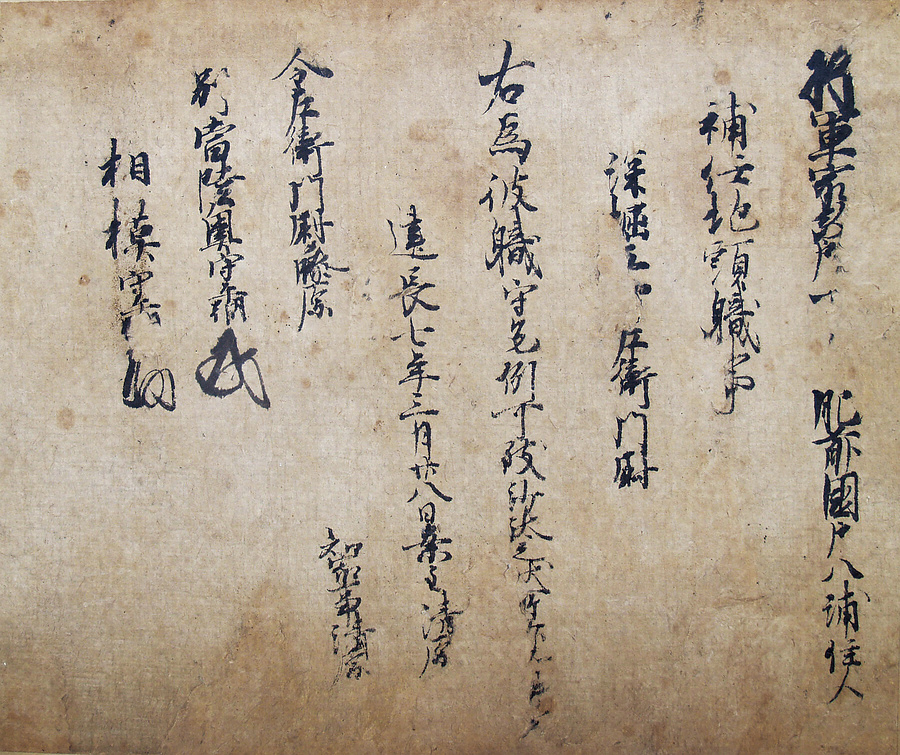 将軍家政所下 肥前國戸八浦住人
補任地頭職事
深堀 左衛門尉
右為彼職守先例可致沙汰之状所仰如件
建長七年三月廿八日案主清原
知家事清原
令左衛門尉藤原
別當陸奥守平朝臣
相模守平朝臣